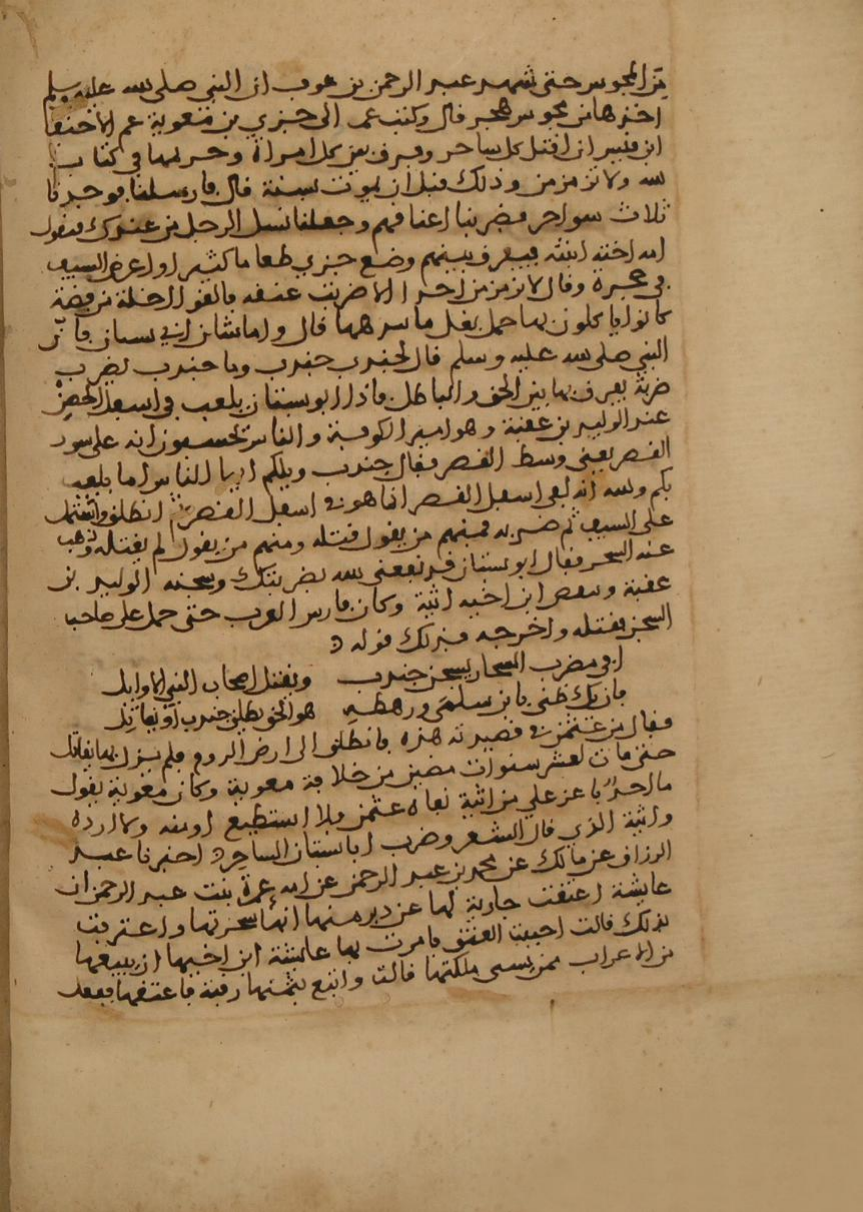 من المجوس حتى شهد عبد الرحمن بن عوف ان النبي صلى الله عليه وسلم
اخذها من مجوس هجر قال وكتب عمر الى جزي بن معوية عم الاحنف
ابن قيس ان اقتل كل ساحر وفرق بين كل امراة وحريمها في كتاب
الله ولا تزمزمن وذلك قبل ان يموت بسنة قال فارسلنا فوجدنا
ثلاث سواحر فضربنا اعناقهم وجعلنا نسل الرجل من عندك فيقول
امه اخته ابنته فيفرق بينهم وضع جزي طعاما كثيرا واعرض السيف
في حجره وقال لا يزمزمن احد الا ضربت عنقه فالقوا اخلة من فضة
كانوا ياكلون بها حمل بغل ما سرهما قال واما شان ابي بستان فان
النبي صلى الله عليه وسلم قال لجندب جندب وما جندب يضرب
ضربة يفرق بها بين الحق والباطل فاذا ابو بستان يلعب في اسفل الحصن
عند الوليد بن عقبة وهو امير الكوفة والناس يحسبون انه على سور
القصر يعني وسط القصر فقال جندب ويلكم ايها الناس اما يلعب
بكم والله انه لفي اسفل القصر انما هو في اسفل القصر ثم انطلق واشتمل
على السيف ثم ضربه فمنهم من يقول قتله ومنهم من يقول لم يقتله وذهب
عنه السحر فقال ابو بستان قد نفعني الله بضربتك وسجنه الوليد بن
عقبة وتنقص ابن اخيه اثية وكان فارس العرب حتى حمل على صاحب
السجن فقتله واخرجه فذلك قوله
افي مضرب السحار يسجن جندب ويقتل اصحاب النبي الاوايل
فان يك ظني بابن سلمى ورهطه هو الحق يطلق جندب او يقاتل
فقال من عثمن في قصيدته هذه فانطلق الى ارض الروم فلم يزل بها يقاتل
حتى مات لعشر سنوات مضين من خلافة معوية وكان معوية يقول
ما احد باعز علي من اثية نفاه عثمن فلا استطيع اومنه ولا ارده
واثية الذي قال الشعر وضرب ابا بستان الساحر اخبرنا عبد
الرزاق عن مالك عن محمد بن عبد الرحمن عن امه عمرة بنت عبد الرحمن ان
عايشة اعتقت جارية لها عن دبر منها انها سحرتها واعترفت
بذلك قالت احببت العتق فامرت بها عايشة ابن اخيها ان يبيعها
من الاعراب ممن يسى ملكتها قالت وابتع بثمنها رقبة فاعتقها ففعل